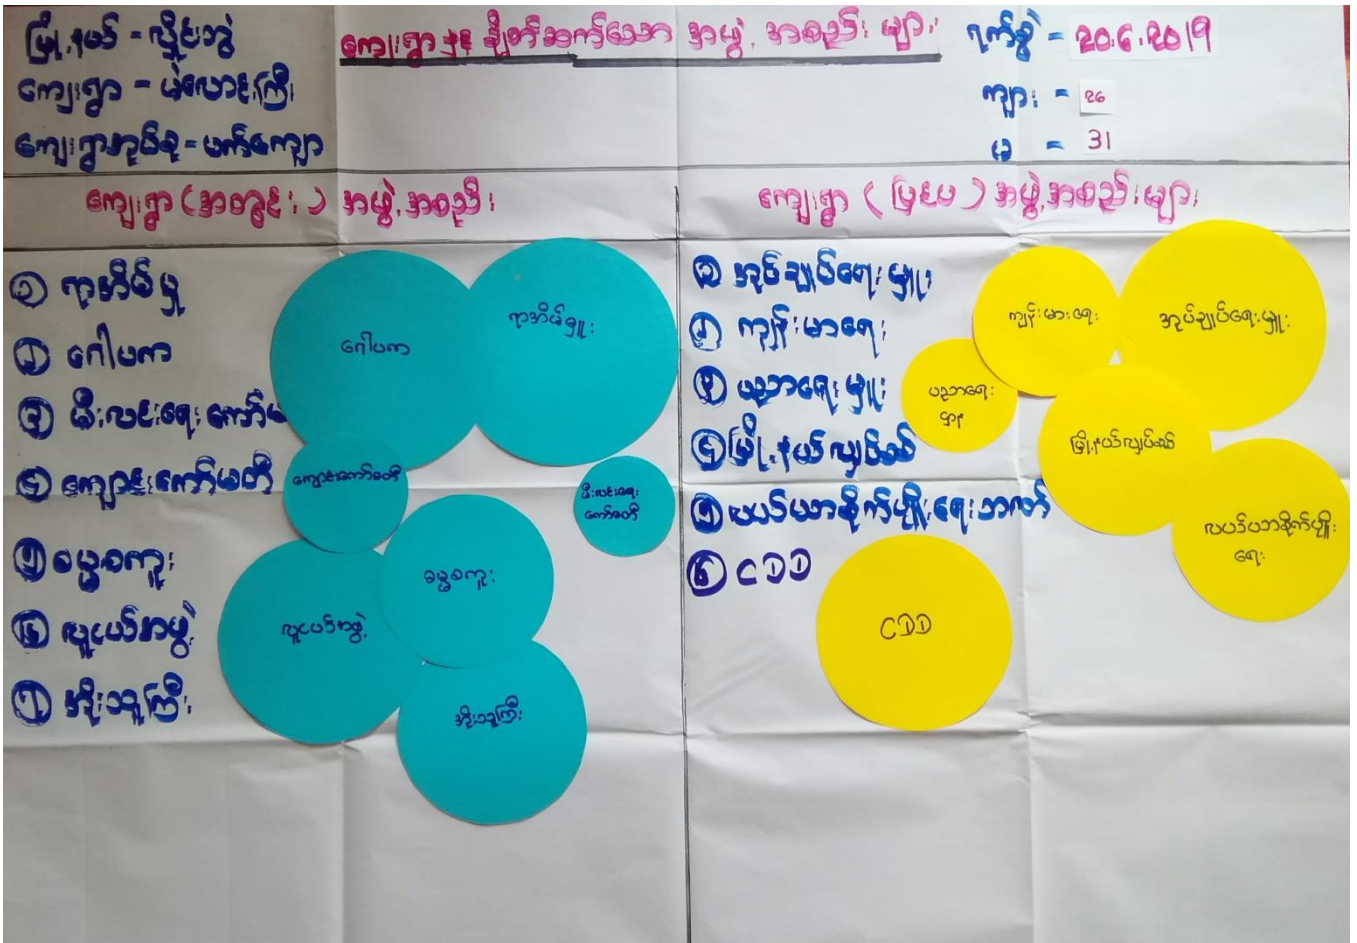 မြို့နယ် = လှိုင်းဘွဲ
ကျေးရွာ = မဲလောင်းကြီး
ကျေးရွာအုပ်စု = ဖက်ကျော
ကျေးရွာနှင့် ချိတ်ဆက်သော အဖွဲ့အစည်းများ
ရက်စွဲ = 20.6.2019
ကျား = 26
မ = 31
ကျေးရွာ (အတွင်း) အဖွဲ့အစည်း
၁ ရာအိမ်မှူ
၂ ဂေါပက
၃ မီးလင်းရေးကော်မ
၄ ကျောင်းကော်မတီ
၅ ဓမ္မစကူး
၆ လူငယ်အဖွဲ့
၇ အိုးသူကြီး
ဂေါပက
ရာအိမ်မှူး
ကျောင်းကော်မတီ
မီးလင်းရေး
ကော်မတီ
ဓမ္မစကူး
လူငယ်အဖွဲ့
အိုးသူကြီး
ကျေးရွာ (ပြင်ပ) အဖွဲ့အစည်းများ
၁ အုပ်ချုပ်ရေးမှူး
၂ ကျန်းမာရေး
၃ ပညာရေးမှူး
၄ မြို့နယ်လျှပ်စစ်
၅ လယ်ယာစိုက်ပျိုးရေးဘဏ်
၆ CDD
ကျန်းမာရေး
အုပ်ချုပ်ရေးမှူး
ပညာရေး
ဌာန
မြို့နယ်လျှပ်စစ်
လယ်ယာစိုက်ပျိုး
ရေး
CDD